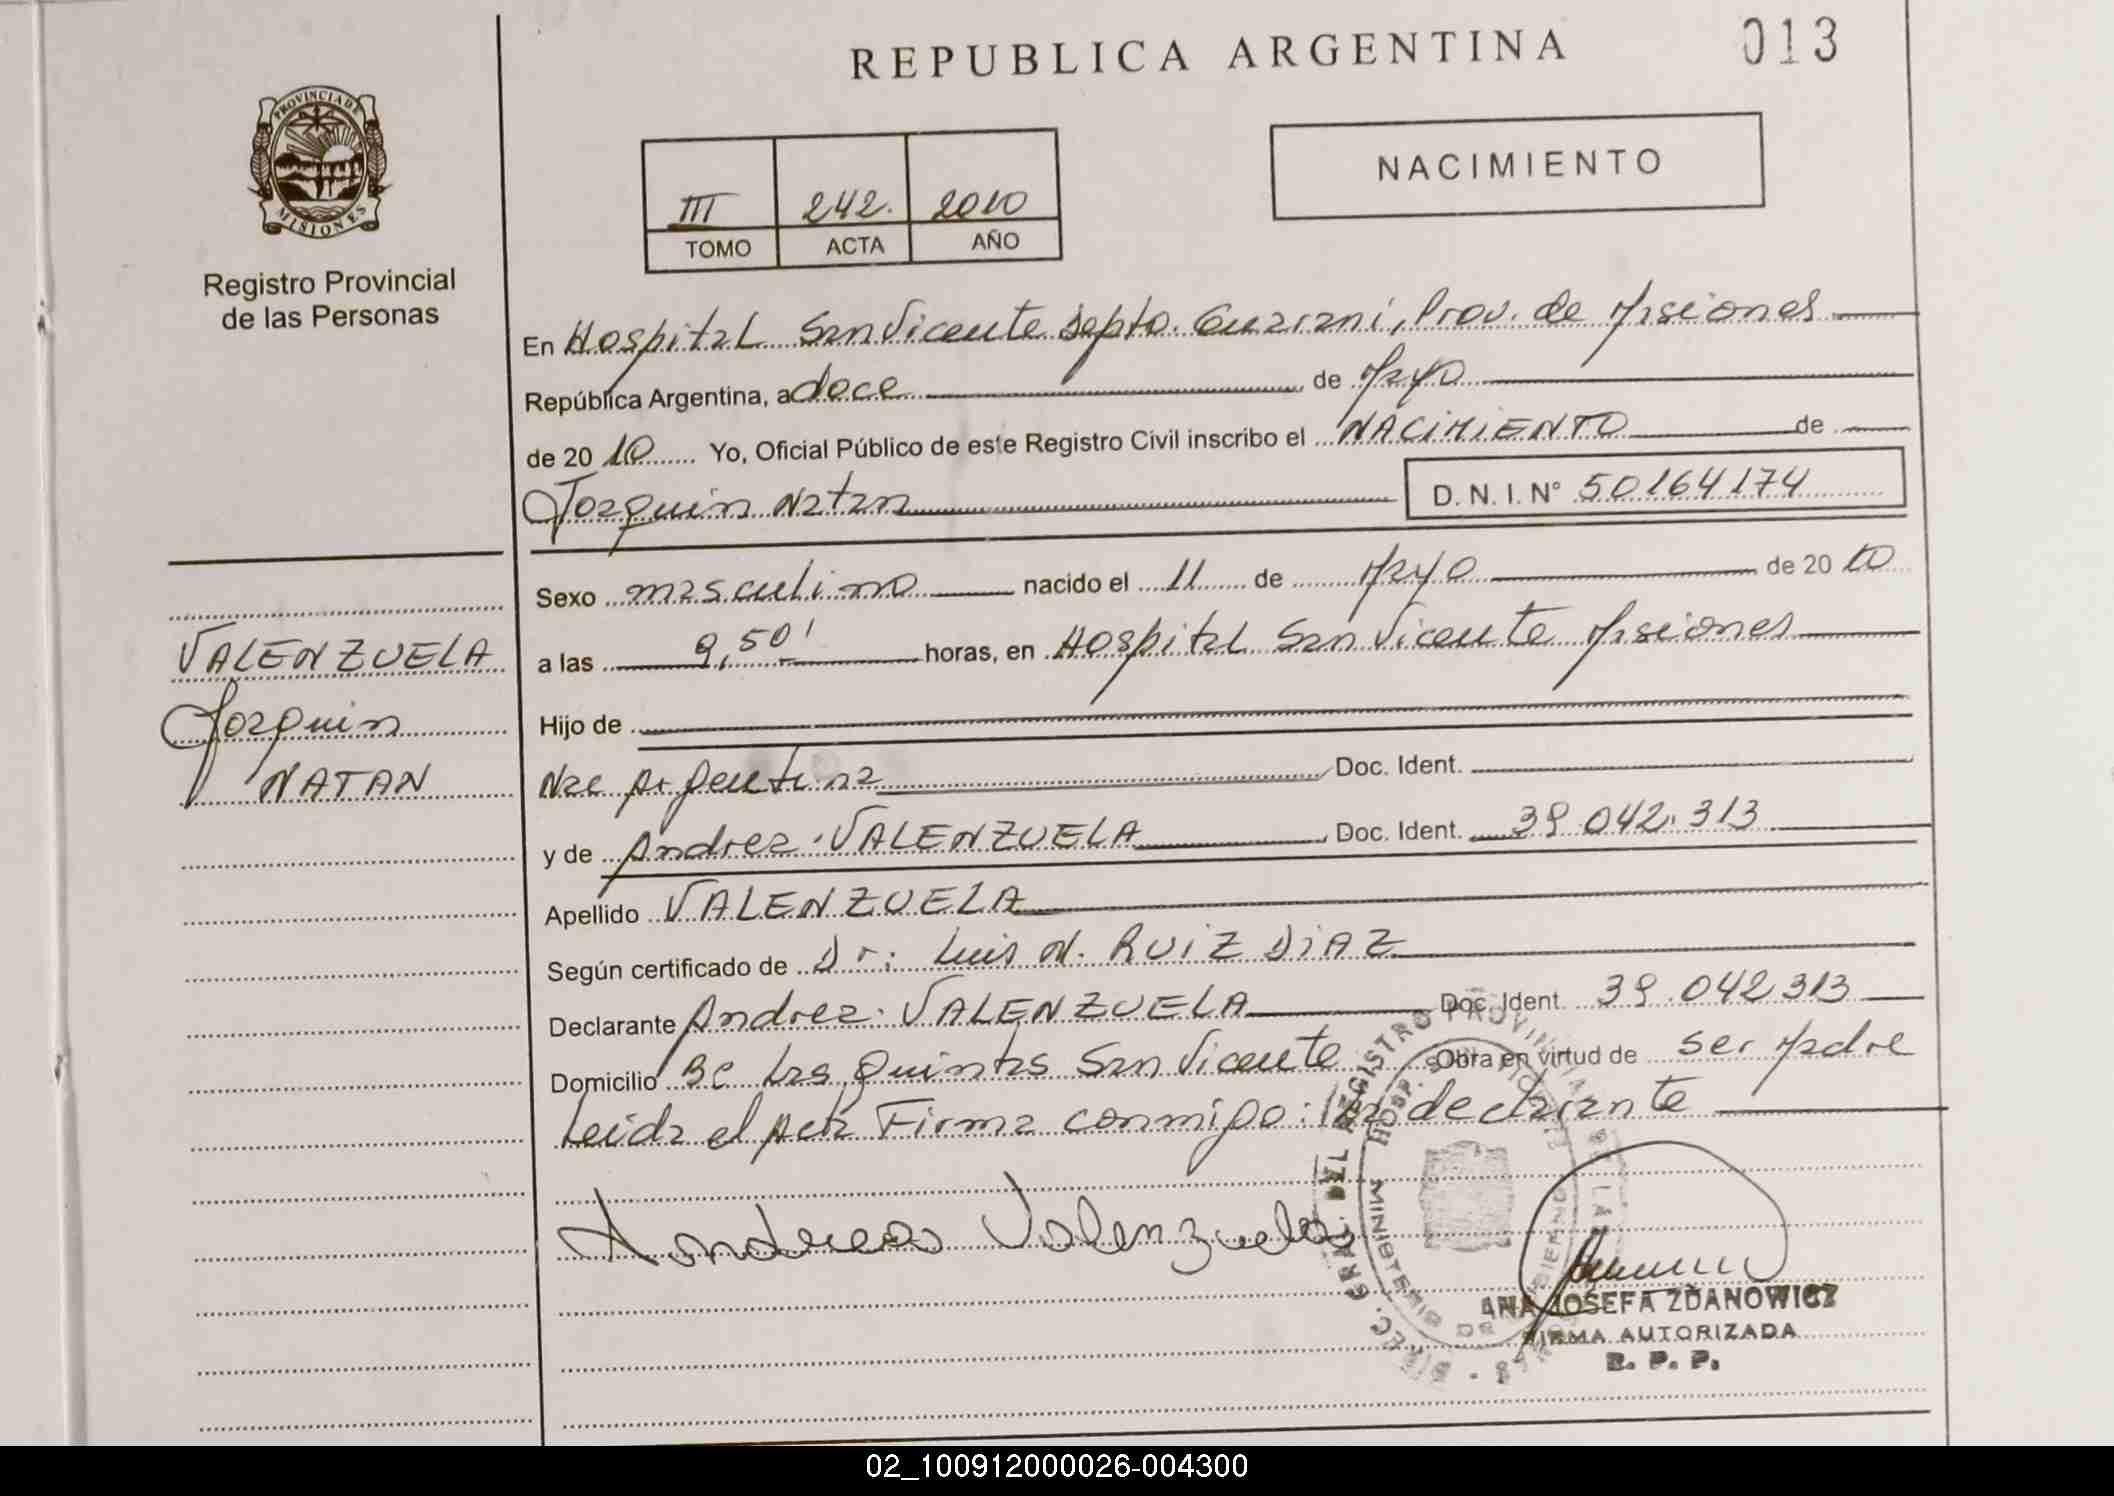 REPUBLICA ARGENTINA
013
PROVINCIA DE
MISIONES
Registro Provincial
de las Personas
III 242. 2010
TOMO ACTA AÑO
NACIMIENTO
En Hospital San Vicente Depto. Guarani, Prov. de Misiones
República Argentina, a doce de Mayo
de 2010 Yo, Oficial Público de este Registro Civil inscribo el NACIMIENTO de
Joaquin Natan D. N. I. N° 50164174
VALENZUELA
Joaquin
NATAN
Sexo masculino nacido el 11 de Mayo de 2010
a las 9,50' horas, en Hospital San Vicente Misiones
Hijo de
Nac Argentina Doc. Ident.
y de Andrea VALENZUELA Doc. Ident. 39.042.313
Apellido VALENZUELA
Según certificado de Dr: Luis N. RUIZ DIAZ
Declarante Andrea VALENZUELA Doc. Ident. 39.042.313
Domicilio Bº Las Quintas San Vicente Obra en virtud de ser Madre
Leida el Acta Firma conmigo: la declarante
Andrea Valenzuela
ANA JOSEFA ZDANOWICZ
FIRMA AUTORIZADA
R. P. P.
02_100912000026-004300